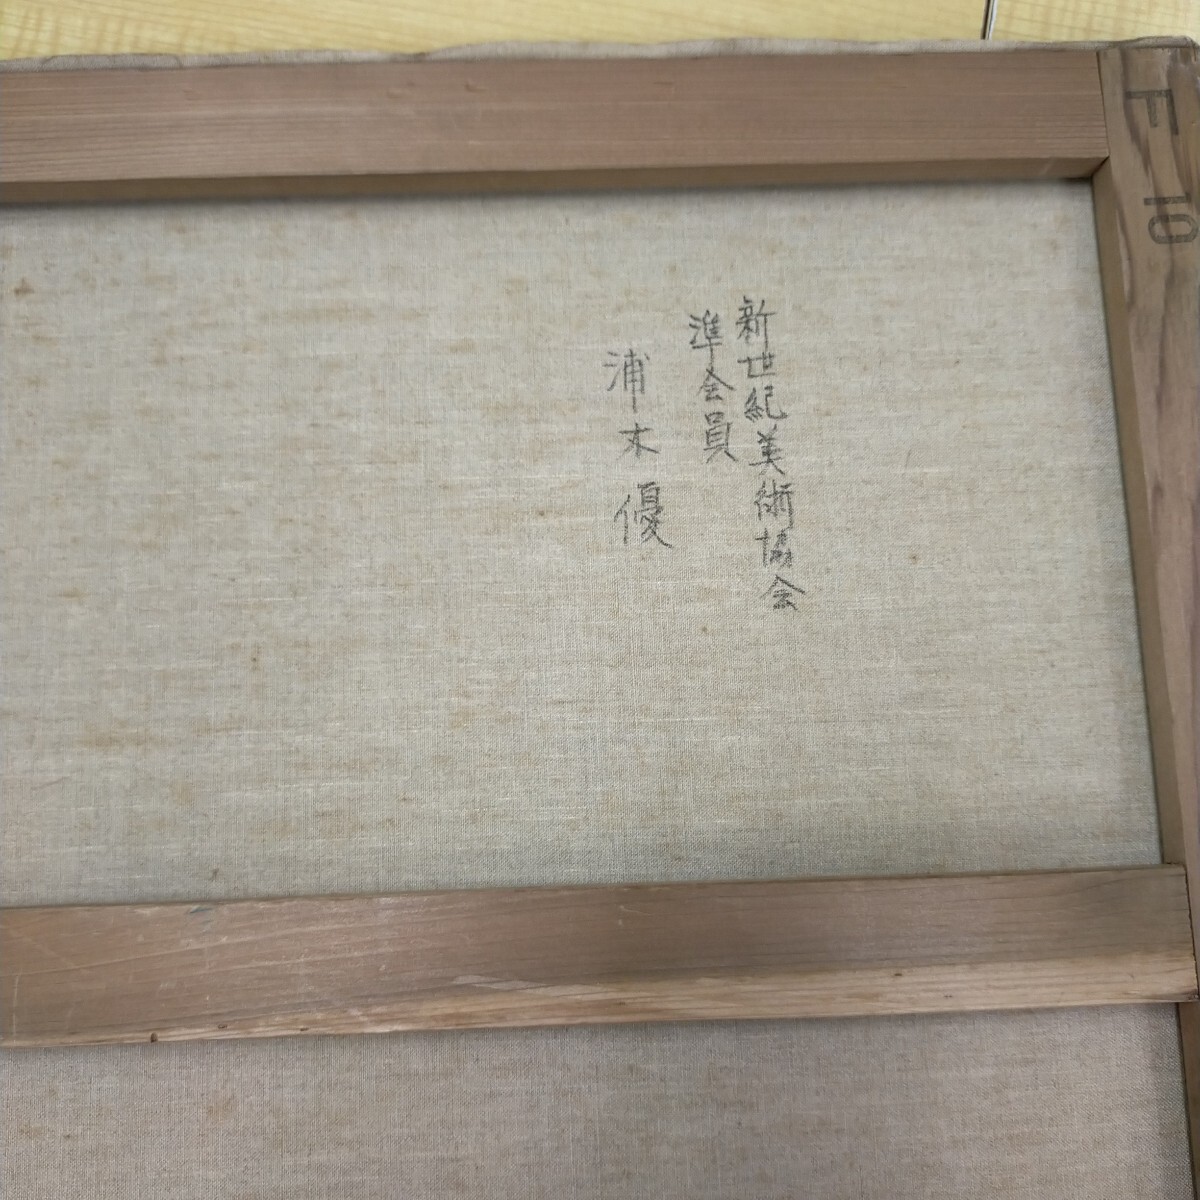 新世紀美術協会
準会員
浦木優
F10